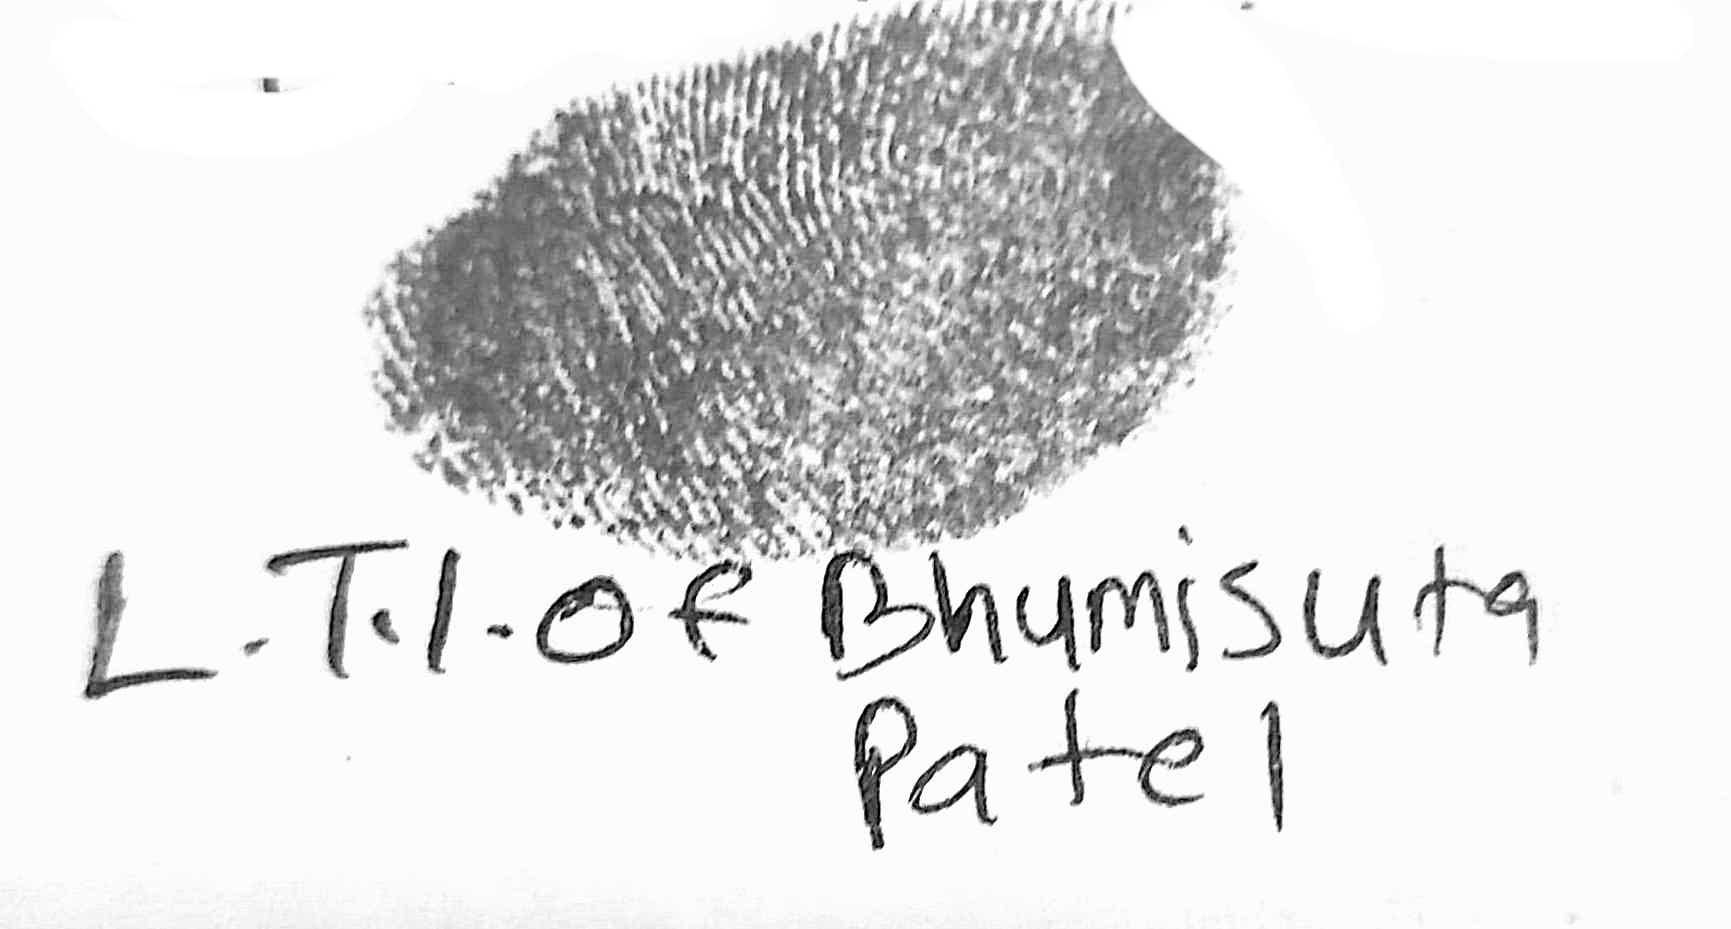 L.T.I. of Bhumisuta
Patel